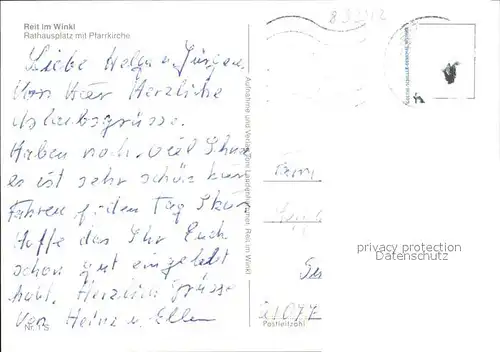 Reit im Winkl
Rathausplatz mit Pfarrkirche
Liebe Helga u. Jürgen.
Von hier Herzliche
Urlaubsgrüsse.
Haben noch viel Schnee
es ist sehr schön hier
Fahren jeden Tag Ski
Hoffe das Ihr Euch
schon gut eingelebt
habt. Herzliche Grüsse
von Heinz u. Ellen
Nr. 1 S
Aufnahme und Verlag
Reit im Winkl
Fam.
Postleitzahl
privacy protection
Datenschutz